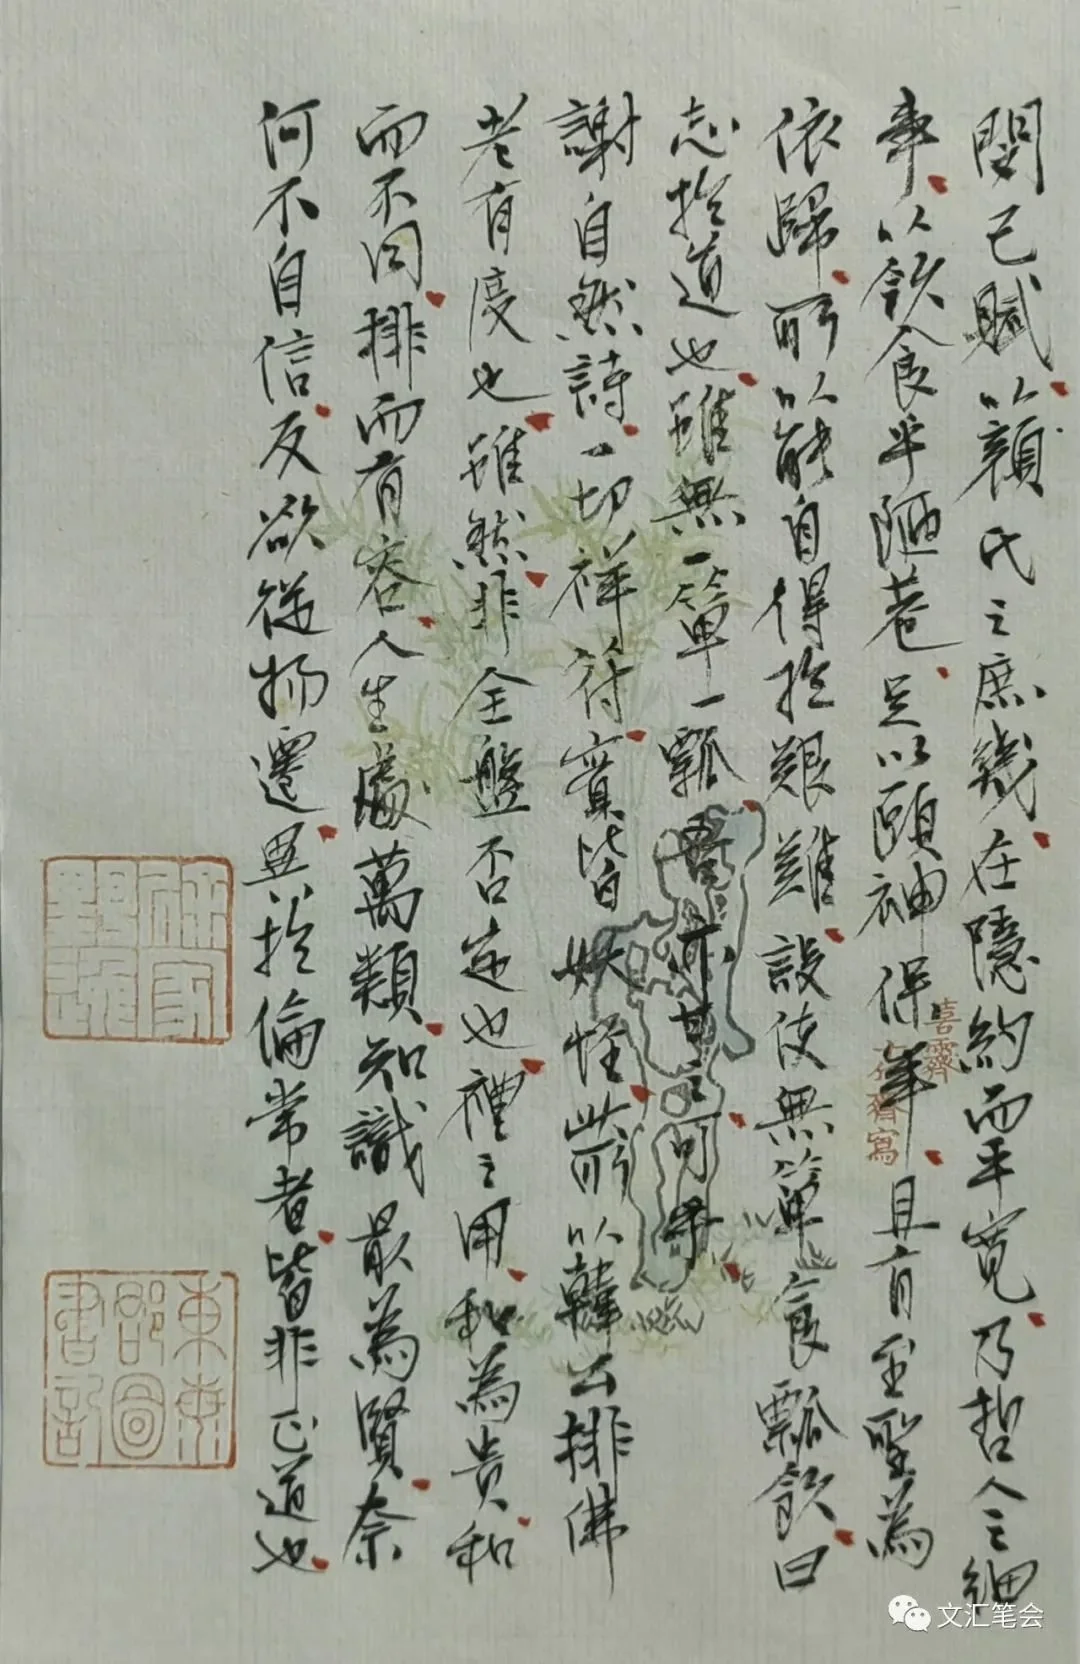 閔己賦以顏氏之庶幾在隱約而平寬乃哲人之細
事以飲食乎陋巷足以頤神保年且有至聖為
依歸所以能自得於艱難設使無簞食瓢飲曰
志於道也雖無一簞一瓢吾亦甘之可乎
謝自然詩一切祥符實皆妖怪前以韓公排佛
老有度也雖然非全盤否定也禮之用和為貴和
而不同排而有容人生處萬類知識最為賢奈
何不自信反欲從物遷異於倫常者皆非正道也
喜齋
石齋寫
東萊郡圖書記
文汇笔会